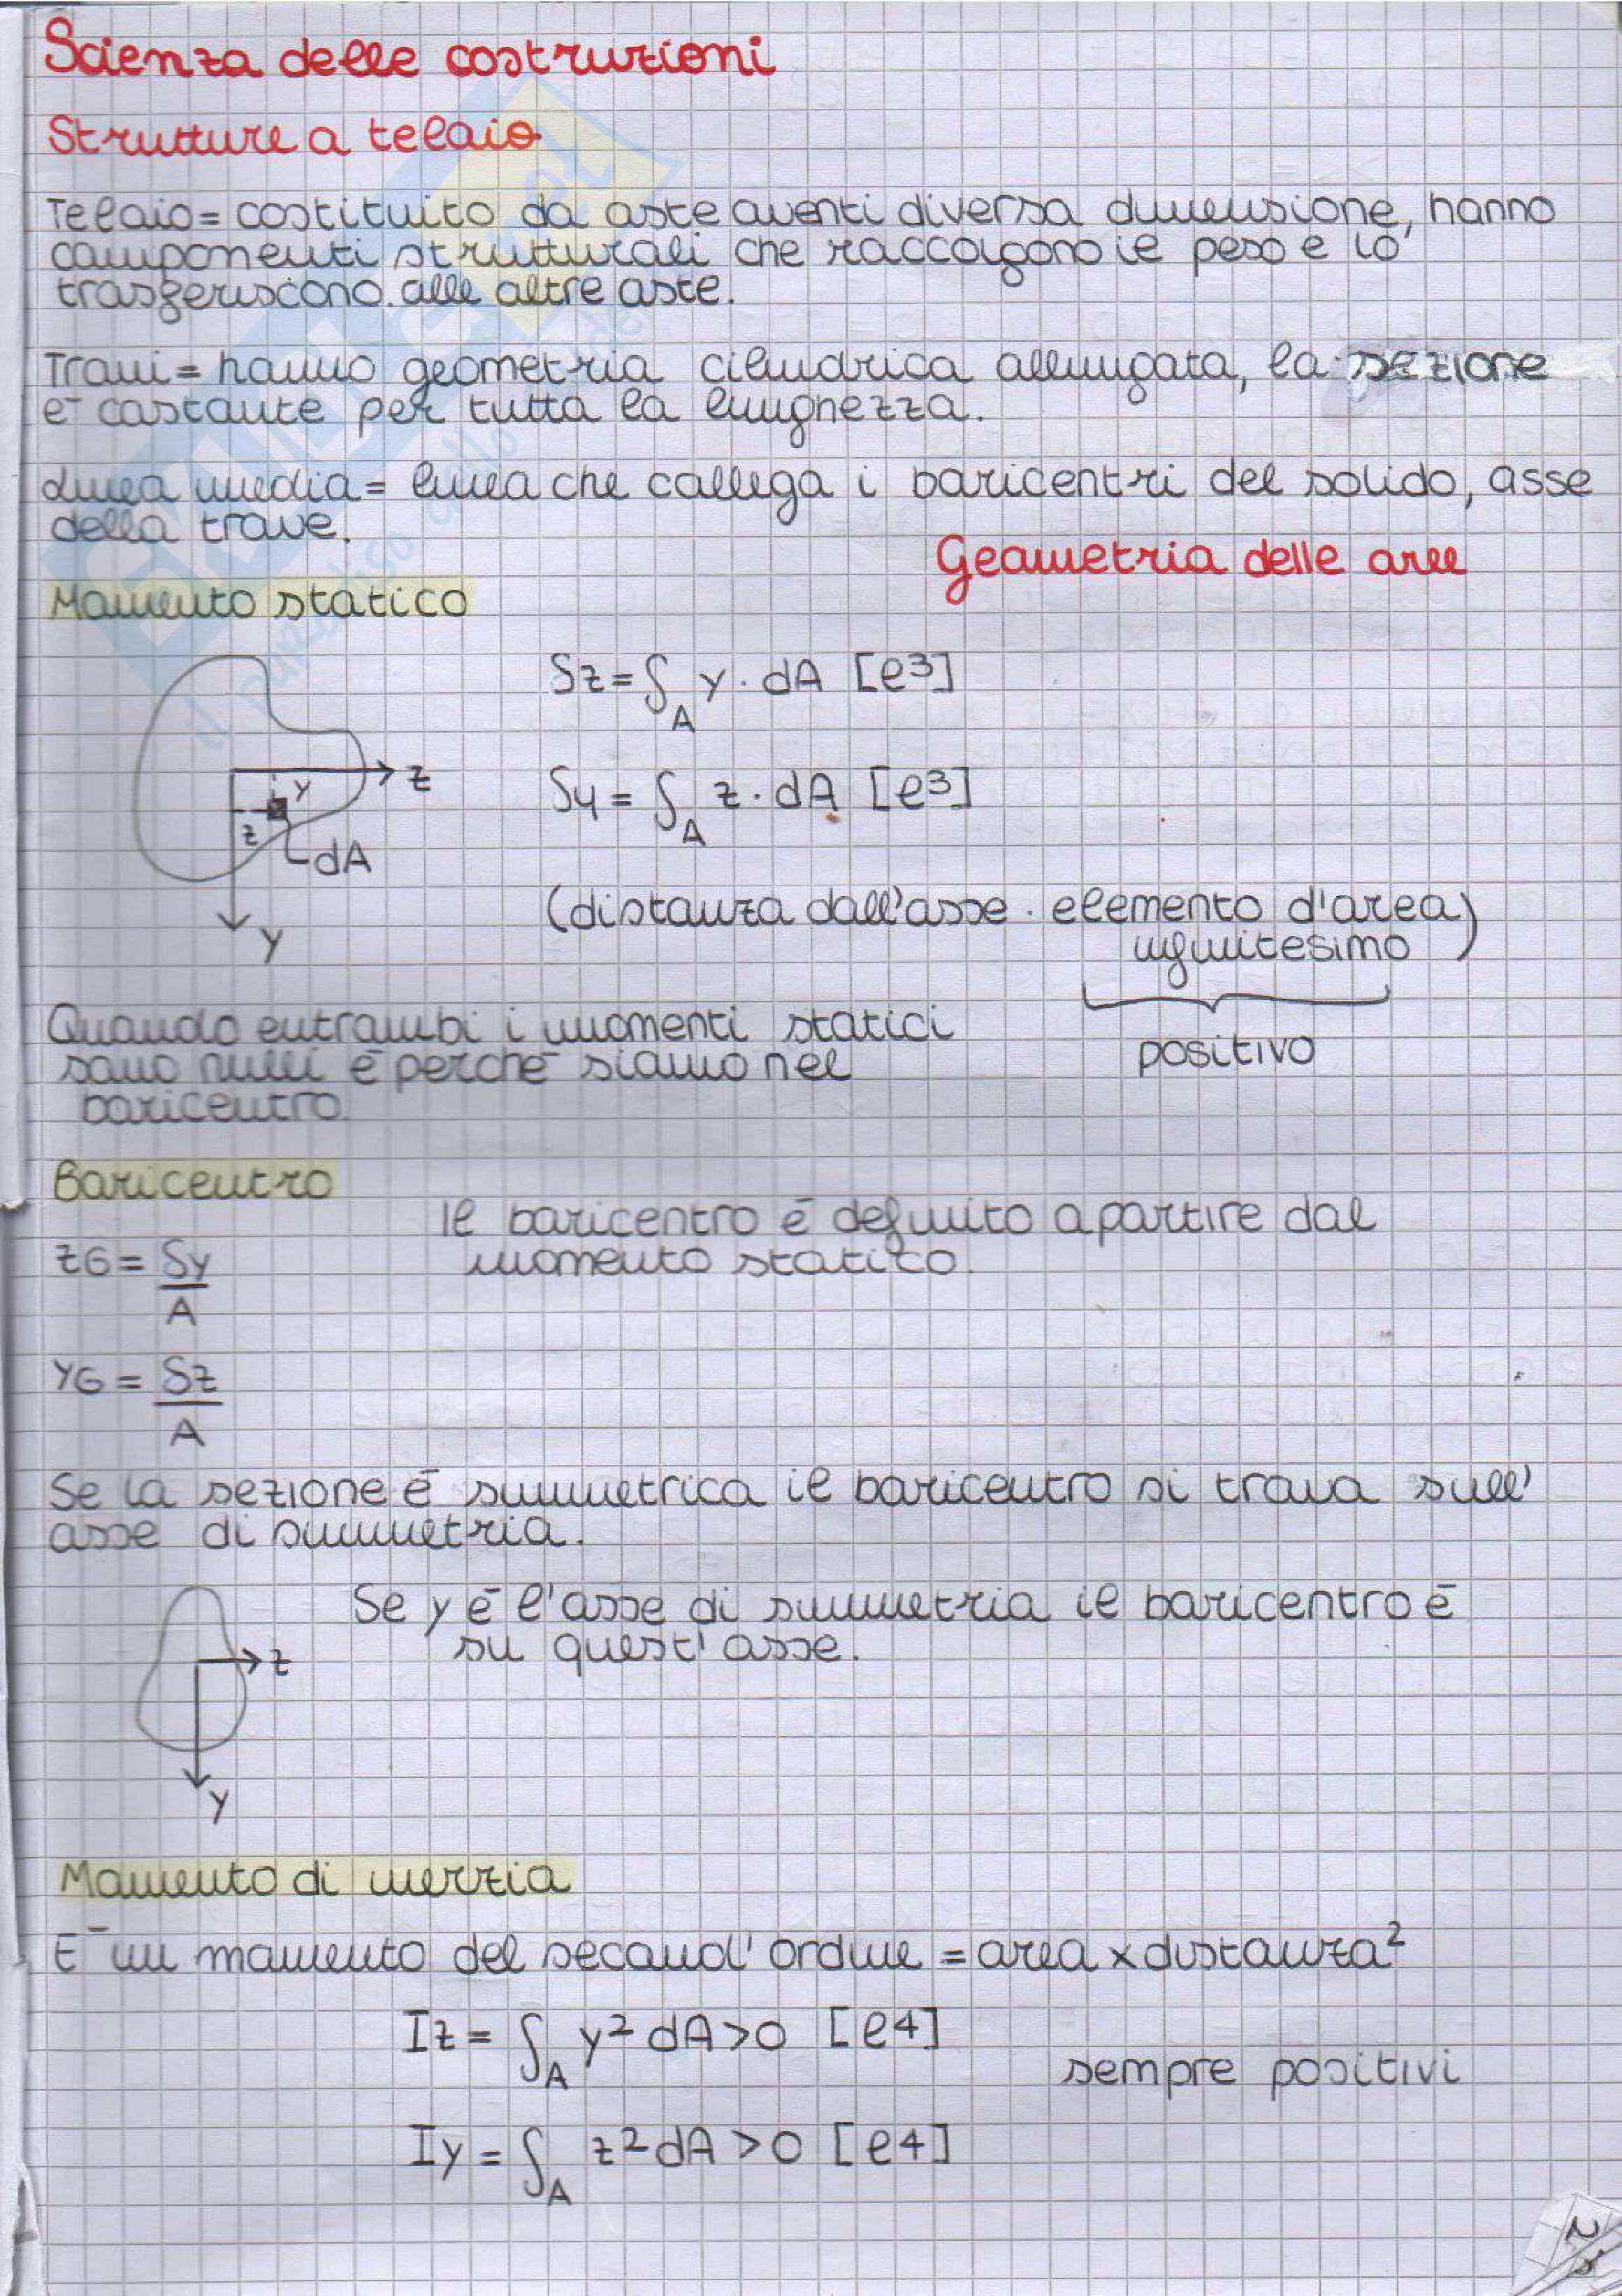 Scienza delle costruzioni
Strutture a telaio
Telaio = costituito da aste aventi diversa dimensione, hanno
componenti strutturali che raccolgono il peso e lo
trasferiscono alle altre aste.
Travi = hanno geometria cilindrica allungata, la sezione
è costante per tutta la lunghezza.
Linea media = linea che collega i baricentri del solido, asse
della trave.
Geometria delle aree
Momento statico
Sz = ∫A y · dA [l³]
Sy = ∫A z · dA [l³]
z
y
z
dA
y
(distanza dall'asse · elemento d'area
infinitesimo)
positivo
Quando entrambi i momenti statici
sono nulli è perchè siamo nel
baricentro.
Baricentro
Il baricentro è definito a partire dal
momento statico.
zG = Sy
A
yG = Sz
A
Se la sezione è simmetrica il baricentro si trova sull'
asse di simmetria.
Se y è l'asse di simmetria il baricentro è
su quest'asse.
z
y
Momento di inerzia
È un momento del second'ordine = area x distanza²
Iz = ∫A y² dA > 0 [l⁴]
sempre positivi
Iy = ∫A z² dA > 0 [l⁴]